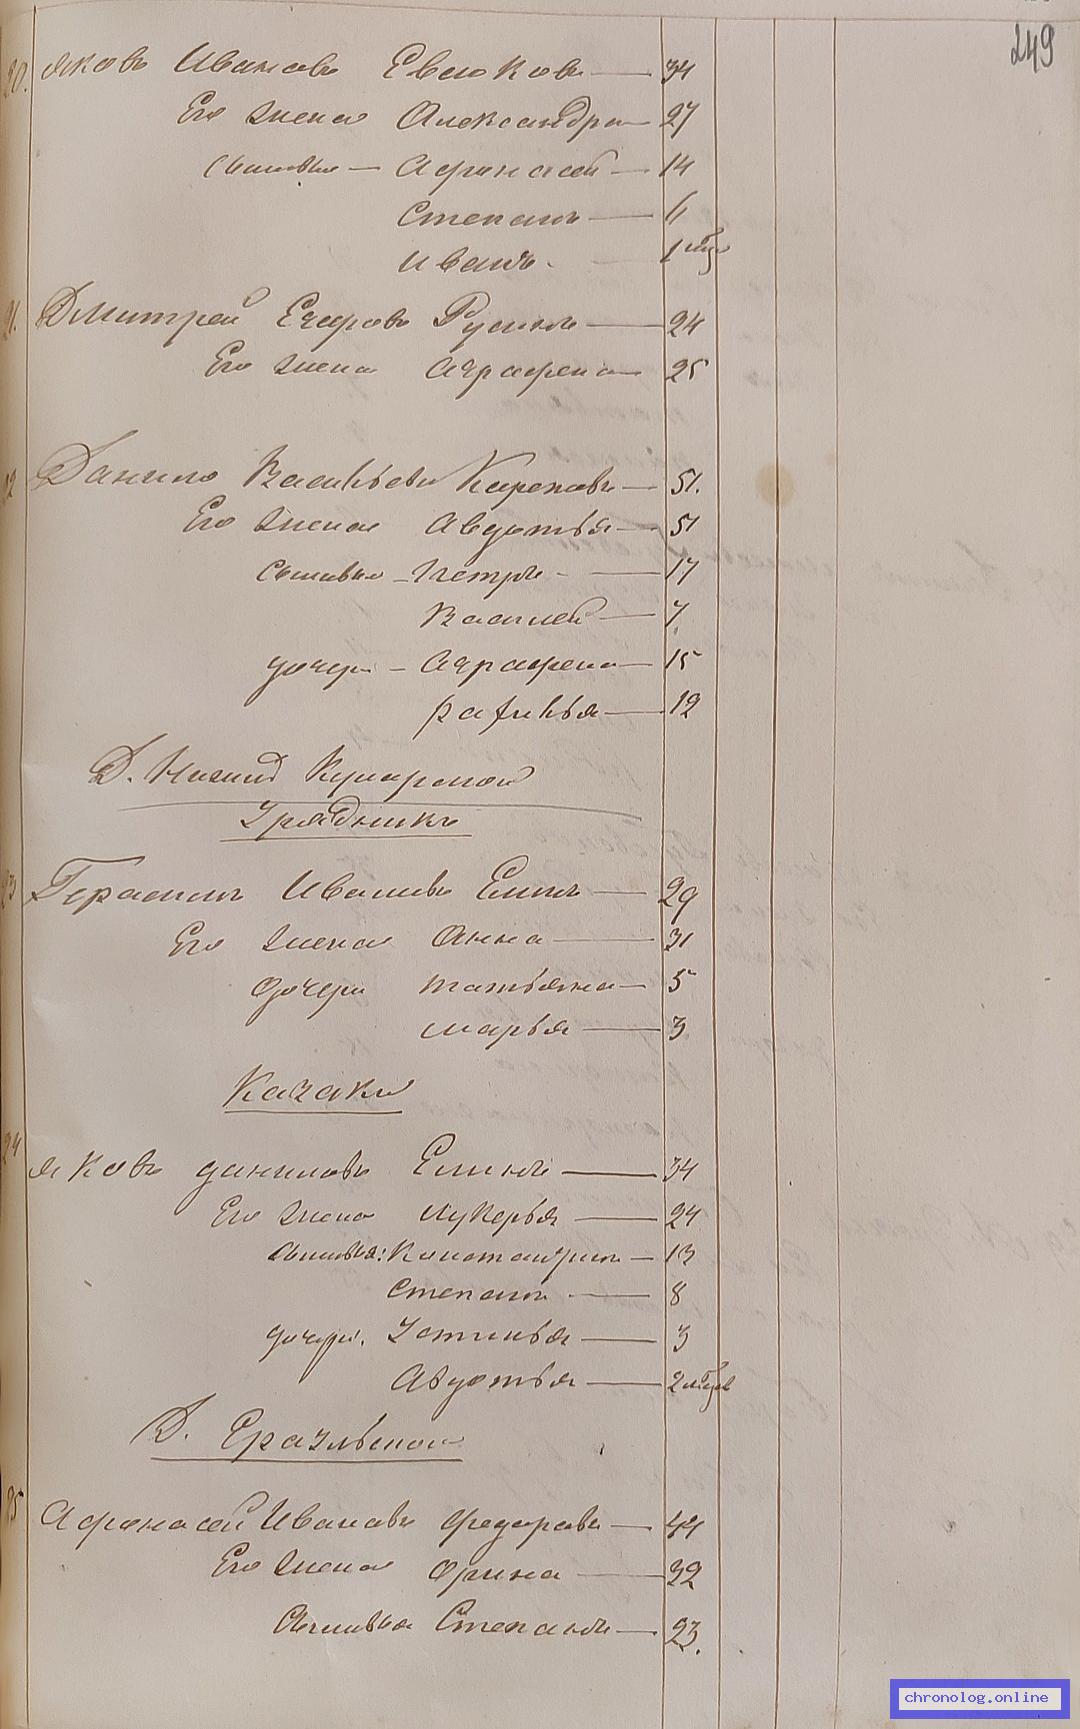 249
20. Яковъ Ивановъ Евсюковъ — 34
Его жена Александра — 27
Сыновья — Афонасей — 14
Степанъ — 6
Иванъ. 1
21. Дмитрей Егоровъ — 24
Его жена Аграфена — 25
22 Данило Васильевъ — 51.
Его жена Авдотья — 51
Сыновья — Петръ — 17
Василей — 7
дочери — Аграфена — 15
12
Д. Нижней
Урядникъ
23 Герасимъ Ивановъ Елинъ — 29
Его жена Анна — 31
дочери Татьяна — 5
Марья — 3
Казаки
24 Яковъ Даниловъ Елинъ — 34
Его жена Лукерья — 24
Сыновья: Константинъ — 13
Степанъ — 8
дочери. Устинья — 3
Авдотья — 2
Д.
25 Афонасей Ивановъ Федоровъ — 44
Его жена Орина — 32
Сыновья Степанъ — 23.
chronolog.online